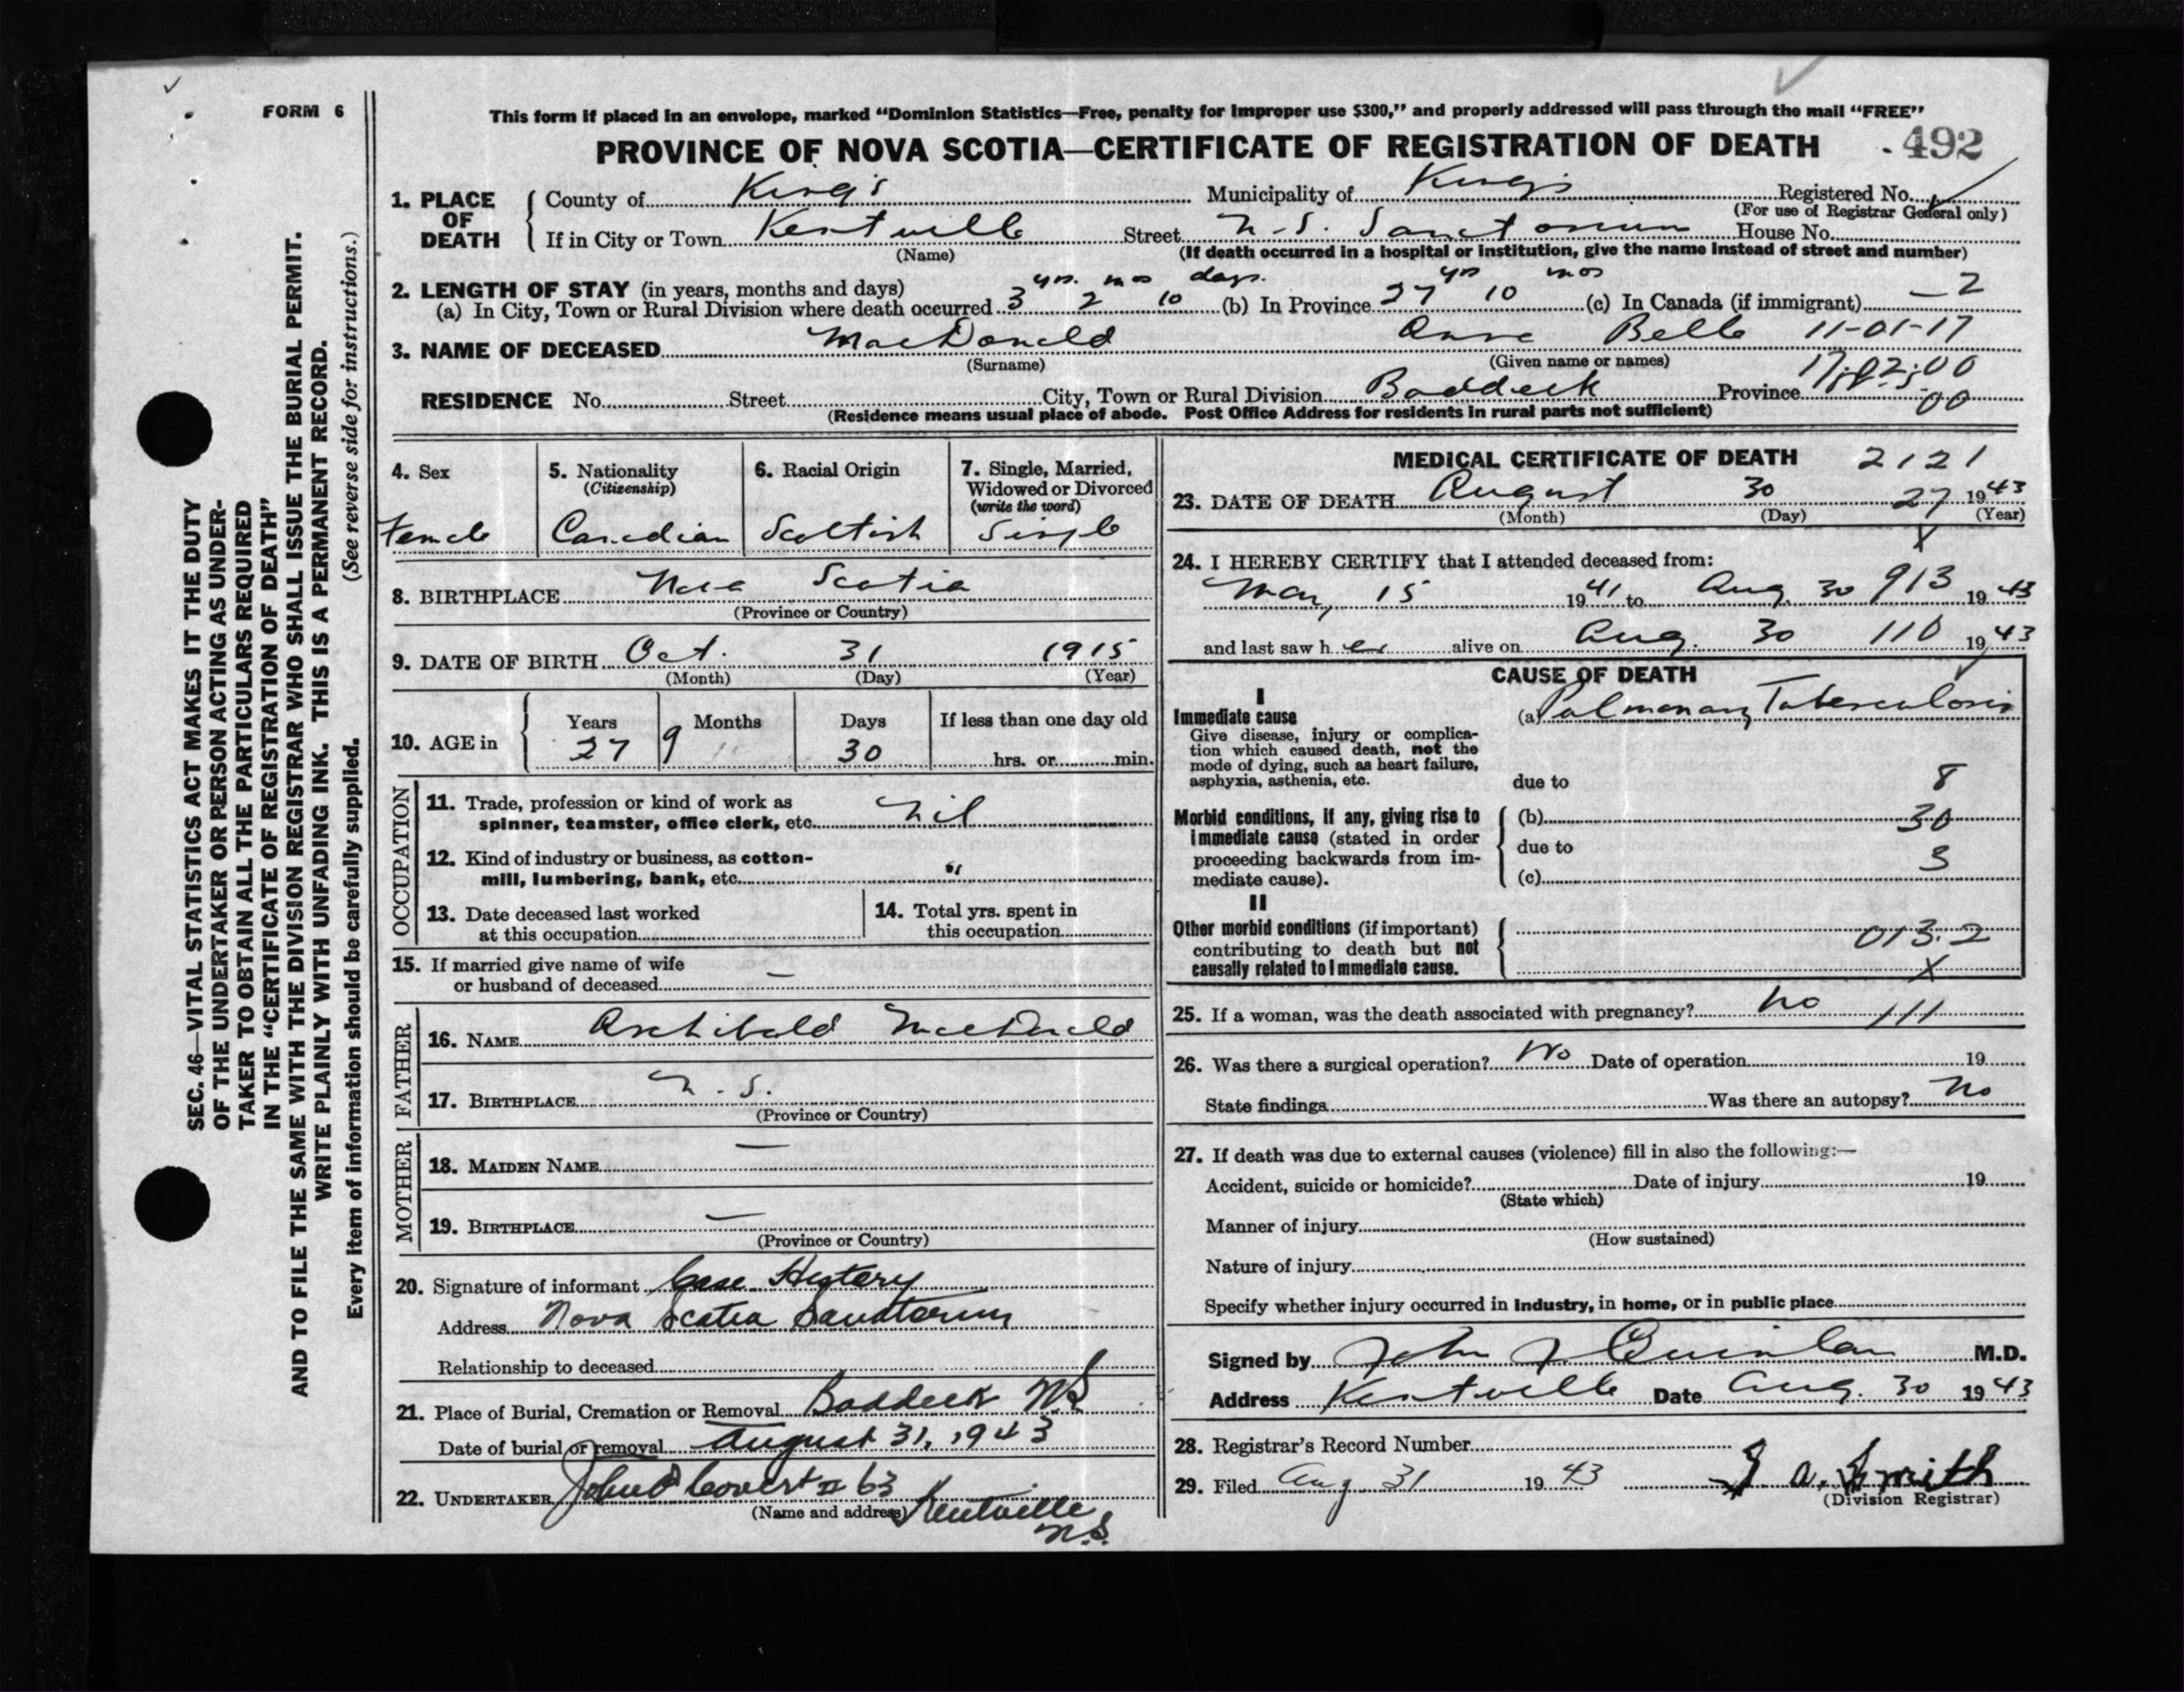 FORM 6
This form if placed in an envelope, marked "Dominion Statistics—Free, penalty for improper use $300," and properly addressed will pass through the mail "FREE"
PROVINCE OF NOVA SCOTIA—CERTIFICATE OF REGISTRATION OF DEATH 492
1. PLACE OF DEATH
County of King's Municipality of King's Registered No.
(For use of Registrar General only)
If in City or Town Kentville Street N.S. Sanctorium House No.
(Name) (If death occurred in a hospital or institution, give the name instead of street and number)
2. LENGTH OF STAY (in years, months and days) yrs. mos days. yrs mos
(a) In City, Town or Rural Division where death occurred 3 2 10 (b) In Province 27 10 (c) In Canada (if immigrant) — 2
3. NAME OF DECEASED MacDonald Anne Belle 11-01-17
(Surname) (Given name or names)
RESIDENCE No. Street City, Town or Rural Division Baddeck Province
00
(Residence means usual place of abode. Post Office Address for residents in rural parts not sufficient)
4. Sex
Female
5. Nationality
(Citizenship)
Canadian
6. Racial Origin
Scottish
7. Single, Married,
Widowed or Divorced
(write the word)
Single
8. BIRTHPLACE Nova Scotia
(Province or Country)
9. DATE OF BIRTH Oct. 31 1915
(Month) (Day) (Year)
10. AGE in
Years Months Days If less than one day old
27 9 30 hrs. or min.
OCCUPATION
11. Trade, profession or kind of work as
spinner, teamster, office clerk, etc. Nil
12. Kind of industry or business, as cotton-
mill, lumbering, bank, etc. "
13. Date deceased last worked
at this occupation
14. Total yrs. spent in
this occupation
15. If married give name of wife
or husband of deceased —
FATHER
16. NAME Archibald MacDonald
17. BIRTHPLACE N.S.
(Province or Country)
MOTHER
18. MAIDEN NAME —
19. BIRTHPLACE —
(Province or Country)
20. Signature of informant Case History
Address Nova Scotia Sanatorium
Relationship to deceased
21. Place of Burial, Cremation or Removal Baddeck NS
Date of burial or removal August 31, 1943
22. UNDERTAKER John Covert 63
(Name and address) Kentville
N.S.
MEDICAL CERTIFICATE OF DEATH 2121
23. DATE OF DEATH August 30 27 1943
(Month) (Day) (Year)
X
24. I HEREBY CERTIFY that I attended deceased from:
Mar, 15 1941 to Aug. 30 913 1943
and last saw her alive on Aug. 30 110 1943
CAUSE OF DEATH
I
Immediate cause
Give disease, injury or complica-
tion which caused death, not the
mode of dying, such as heart failure,
asphyxia, asthenia, etc.
(a) Pulmonary Tuberculosis
due to 8
Morbid conditions, if any, giving rise to
immediate cause (stated in order
proceeding backwards from im-
mediate cause).
(b) 30
due to
3
(c)
II
Other morbid conditions (if important)
contributing to death but not
causally related to immediate cause.
013.2
X
25. If a woman, was the death associated with pregnancy? No 111
26. Was there a surgical operation? No Date of operation 19
State findings Was there an autopsy? No
27. If death was due to external causes (violence) fill in also the following:—
Accident, suicide or homicide? Date of injury 19
(State which)
Manner of injury
(How sustained)
Nature of injury
Specify whether injury occurred in industry, in home, or in public place
Signed by John J Quinlan M.D.
Address Kentville Date Aug. 30 1943
28. Registrar's Record Number
29. Filed Aug 31 1943 A. Smith
(Division Registrar)
SEC. 46—VITAL STATISTICS ACT MAKES IT THE DUTY
OF THE UNDERTAKER OR PERSON ACTING AS UNDER-
TAKER TO OBTAIN ALL THE PARTICULARS REQUIRED
IN THE "CERTIFICATE OF REGISTRATION OF DEATH"
AND TO FILE THE SAME WITH THE DIVISION REGISTRAR WHO SHALL ISSUE THE BURIAL PERMIT.
WRITE PLAINLY WITH UNFADING INK. THIS IS A PERMANENT RECORD.
(See reverse side for instructions.)
Every item of information should be carefully supplied.